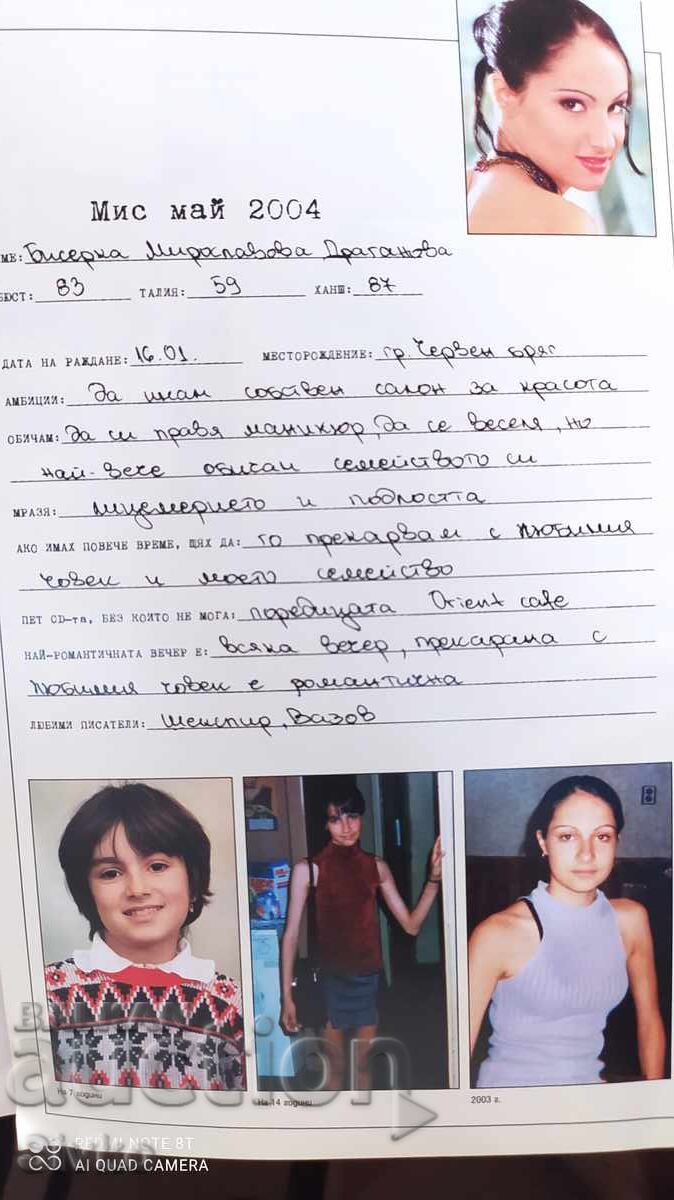 Мис май 2004
МЕ: Бисерка Мирославова Драганова
БЮСТ: 83 ТАЛИЯ: 59 ХАНШ: 87
ДАТА НА РАЖДАНЕ: 16.01. МЕСТОРОЖДЕНИЕ: гр. Червен бряг
АМБИЦИИ: Да имам собствен салон за красота
ОБИЧАМ: Да си правя маникюр, да се веселя, но
най-вече обичам семейството си
МРАЗЯ: лицемерието и подлостта
АКО ИМАХ ПОВЕЧЕ ВРЕМЕ, ЩЯХ ДА: го прекарвам с любимия
човек и моето семейство
ПЕТ CD-та, БЕЗ КОИТО НЕ МОГА: поредицата Orient cafe
НАЙ-РОМАНТИЧНАТА ВЕЧЕР Е: всяка вечер, прекарана с
любимия човек е романтична
ЛЮБИМИ ПИСАТЕЛИ: Шекспир, Вазов
На 7 години
На 14 години
2003 г.
BALKAN
auction
REDMI NOTE 8T
AI QUAD CAMERA